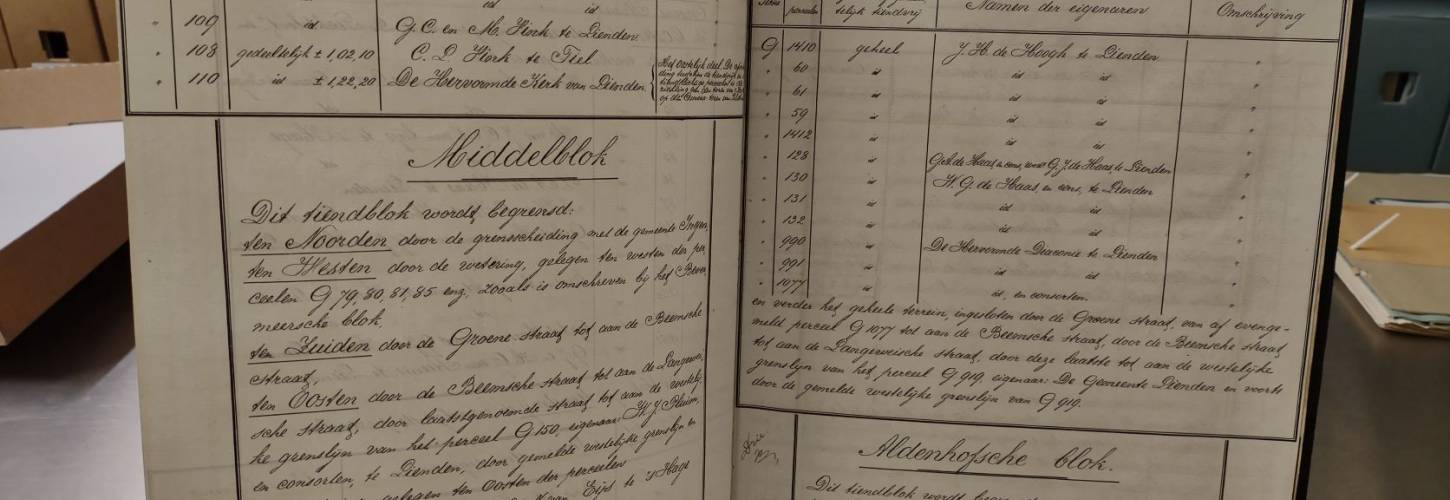 " 109 id G. C. en M. Hork te Lienden.
" 108 gedeeltelijk ± 1,02,10 C. D. Hork te Tiel
" 110 id ± 1,22,20 De Hervormde Kerk van Lienden
Middelblok
Dit tiendblok wordt begrensd:
ten Noorden door de grensscheiding met de gemeente
ten Westen door de wetering, gelegen ten westen der per
ceelen G 79, 80, 81, 85 enz. zooals is omschreven bij het
meersche blok.
ten Zuiden door de Groene straat tot aan de Beemsche
straat,
ten Oosten door de Beemsche straat tot aan de
sche straat, door laatstgenoemde straat tot aan de westelij
ke grenslijn van het perceel G 150, eigenaar:
en consorten, te Lienden, door gemelde westelijke grenslijn en
gelegen ten Oosten der perceelen
Eijs te 's Hage
perceelen telijk tiendvrij Namen der eigenaren Omschrijving
G 1410 geheel J. H. de Hoogh te Lienden "
" 60 id id id "
" 61 id id id "
" 59 id id id "
" 1412 id id id "
" 128 id G. J. de Haas, te Lienden "
" 130 id H. G. de Haas, en cons, te Lienden "
" 131 id id id "
" 132 id id id "
" 990 id De Hervormde Diaconie te Lienden "
" 991 id id id "
" 1077 id id, en consorten. "
en verder het geheele terrein, ingesloten door de Groene straat, van af evenge-
meld perceel G 1077 tot aan de Beemsche straat, door de Beemsche straat
tot aan de Langeweische straat, door deze laatste tot aan de westelijke
grenslijn van het perceel G 919, eigenaar: De Gemeente Lienden en voorts
door de gemelde westelijke grenslijn van G 919.
Aldenhofsche blok.
Dit tiendblok wordt